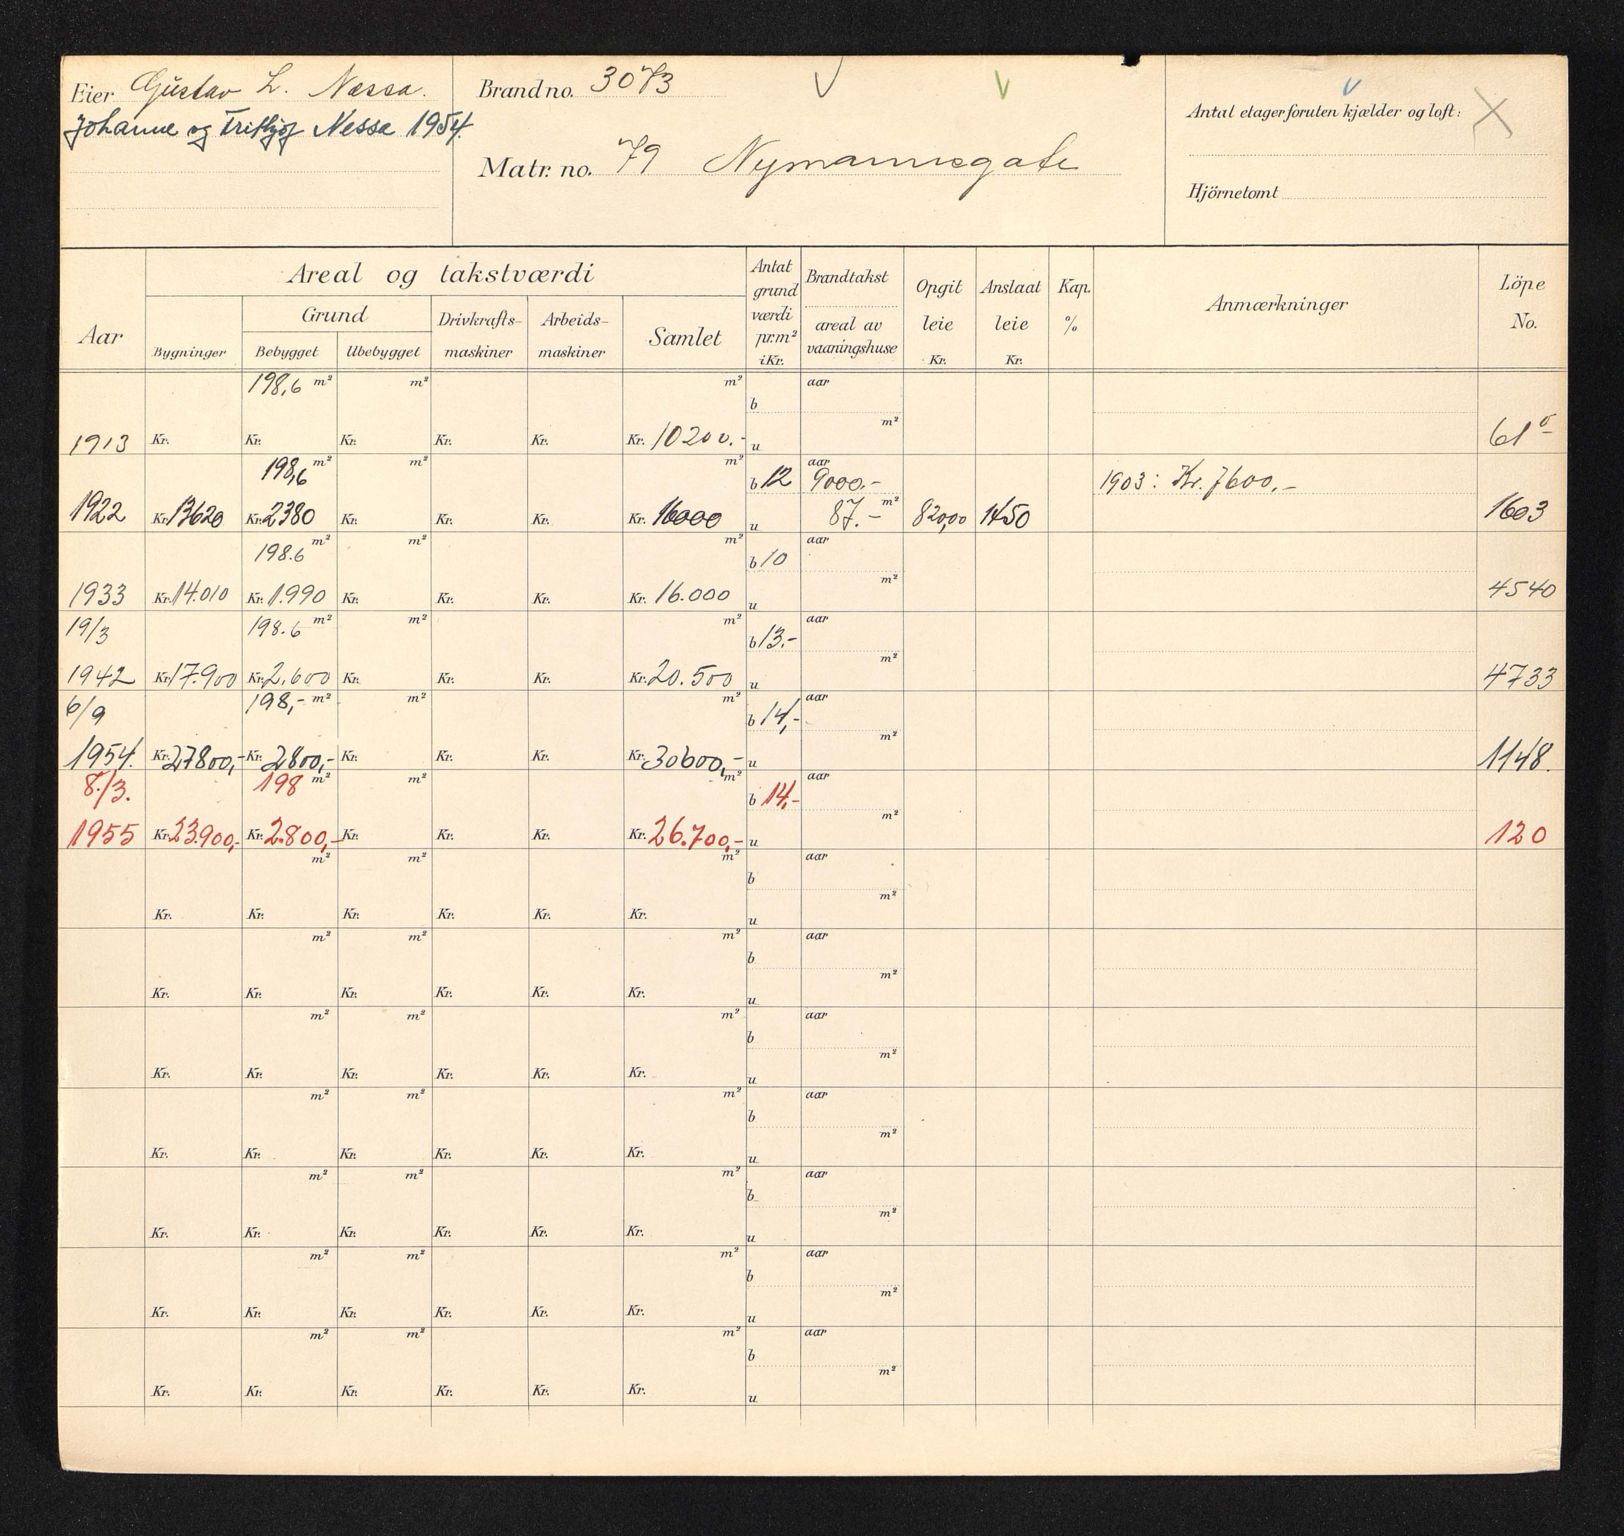 Eier Gustav L. Nessa.
Johanne og Fritjof Nessa 1954.
Brand no. 3073
Matr. no. 79 Nymannsgate
Antal etager foruten kjælder og loft:
Hjörnetomt
Aar
Areal og takstværdi
Bygninger
Grund
Bebygget
Ubebygget
Drivkrafts-
maskiner
Arbeids-
maskiner
Samlet
Antat
grund
værdi
pr.m²
i Kr.
Brandtakst
areal av
vaaningshuse
Opgit
leie
Kr.
Anslaat
leie
Kr.
Kap.
%
Anmærkninger
Löpe
No.
198,6 m² m² m² b aar
1913 Kr. Kr. Kr. Kr. Kr. Kr. 10200.- u m² 61
198,6 m² m² m² b 12 aar 9000.- 1903: Kr. 7600.-
1922 Kr. 13620 Kr. 2380 Kr. Kr. Kr. Kr. 16000 u 87.- m² 820,00 1450 1603
198.6 m² m² m² b 10 aar
1933 Kr. 14.010 Kr. 1.990 Kr. Kr. Kr. Kr. 16.000 u m² 4540
19/3 198.6 m² m² m² b 13.- aar
1942 Kr. 17.900 Kr. 2.600 Kr. Kr. Kr. Kr. 20.500 u m² 4733
6/9 198,- m² m² m² b 14,- aar
1954. Kr. 27800,- Kr. 2800,- Kr. Kr. Kr. Kr. 30600,- u m² 1148.
8./3. 198 m² m² m² b 14,- aar
1955 Kr. 23.900,- Kr. 2.800,- Kr. Kr. Kr. Kr. 26.700,- u m² 120
m² m² m² b aar
Kr. Kr. Kr. Kr. Kr. Kr. u m²
m² m² m² b aar
Kr. Kr. Kr. Kr. Kr. Kr. u m²
m² m² m² b aar
Kr. Kr. Kr. Kr. Kr. Kr. u m²
m² m² m² b aar
Kr. Kr. Kr. Kr. Kr. Kr. u m²
m² m² m² b aar
Kr. Kr. Kr. Kr. Kr. Kr. u m²
m² m² m² b aar
Kr. Kr. Kr. Kr. Kr. Kr. u m²
m² m² m² b aar
Kr. Kr. Kr. Kr. Kr. Kr. u m²